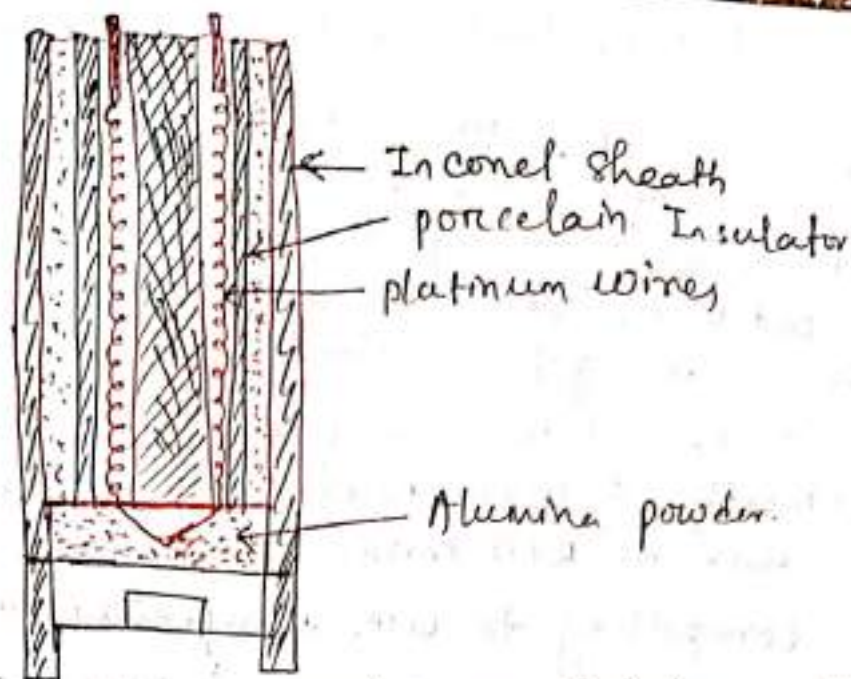 Inconel Sheath
porcelain Insulator
platinum wires
Alumina powder.